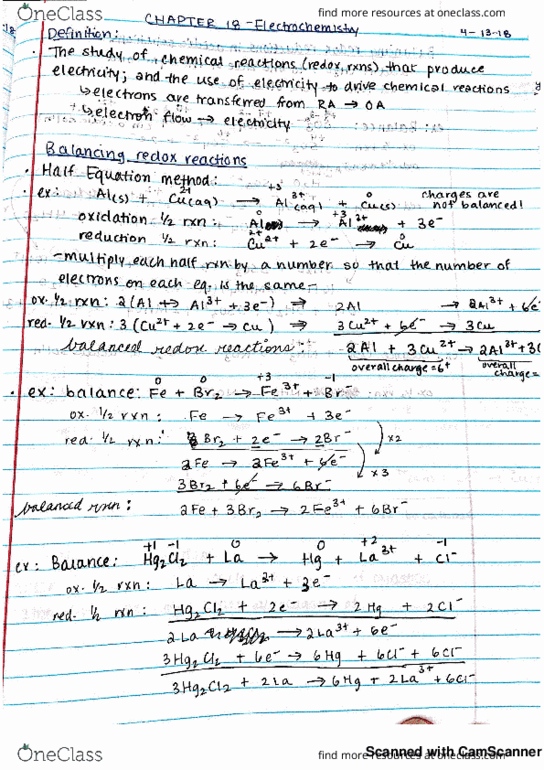 OneClass
find more resources at oneclass.com
CHAPTER 18 - Electrochemistry
4-13-18
Definition:
· The study of chemical reactions (redox rxns) that produce
electricity; and the use of electricity to drive chemical reactions
↳ electrons are transferred from RA → OA
↳ electron flow → electricity
Balancing redox reactions
· Half Equation method:
· ex: Al(s) + Cu²⁺(aq) → Al³⁺(aq) + Cu(s) charges are
+3 0 not balanced!
oxidation 1/2 rxn: Al → Al³⁺ + 3e⁻
reduction 1/2 rxn: Cu²⁺ + 2e⁻ → Cu
- multiply each half rxn by a number so that the number of
electrons on each eq. is the same -
ox. 1/2 rxn: 2(Al → Al³⁺ + 3e⁻) ⇒ 2Al → 2Al³⁺ + 6e⁻
red. 1/2 rxn: 3(Cu²⁺ + 2e⁻ → Cu) ⇒ 3Cu²⁺ + 6e⁻ → 3Cu
balanced redox reactions: 2Al + 3Cu²⁺ → 2Al³⁺ + 3C
overall charge = 6⁺ overall charge =
0 0 +3 -1
· ex: balance: Fe + Br₂ → Fe³⁺ + Br⁻
ox. 1/2 rxn: Fe → Fe³⁺ + 3e⁻
red. 1/2 rxn: Br₂ + 2e⁻ → 2Br⁻ x2
2Fe → 2Fe³⁺ + 6e⁻ x3
3Br₂ + 6e⁻ → 6Br⁻
balanced rxn: 2Fe + 3Br₂ → 2Fe³⁺ + 6Br⁻
+1 -1 0 0 +2 -1
ex: Balance: Hg₂Cl₂ + La → Hg + La³⁺ + Cl⁻
ox. 1/2 rxn: La → La³⁺ + 3e⁻
red. 1/2 rxn: Hg₂Cl₂ + 2e⁻ → 2Hg + 2Cl⁻
2La → 2La³⁺ + 6e⁻
3Hg₂Cl₂ + 6e⁻ → 6Hg + 6Cl⁻ + 6Cl⁻
3Hg₂Cl₂ + 2La → 6Hg + 2La³⁺ + 6Cl⁻
Scanned with CamScanner
OneClass
find more resources at oneclass.com